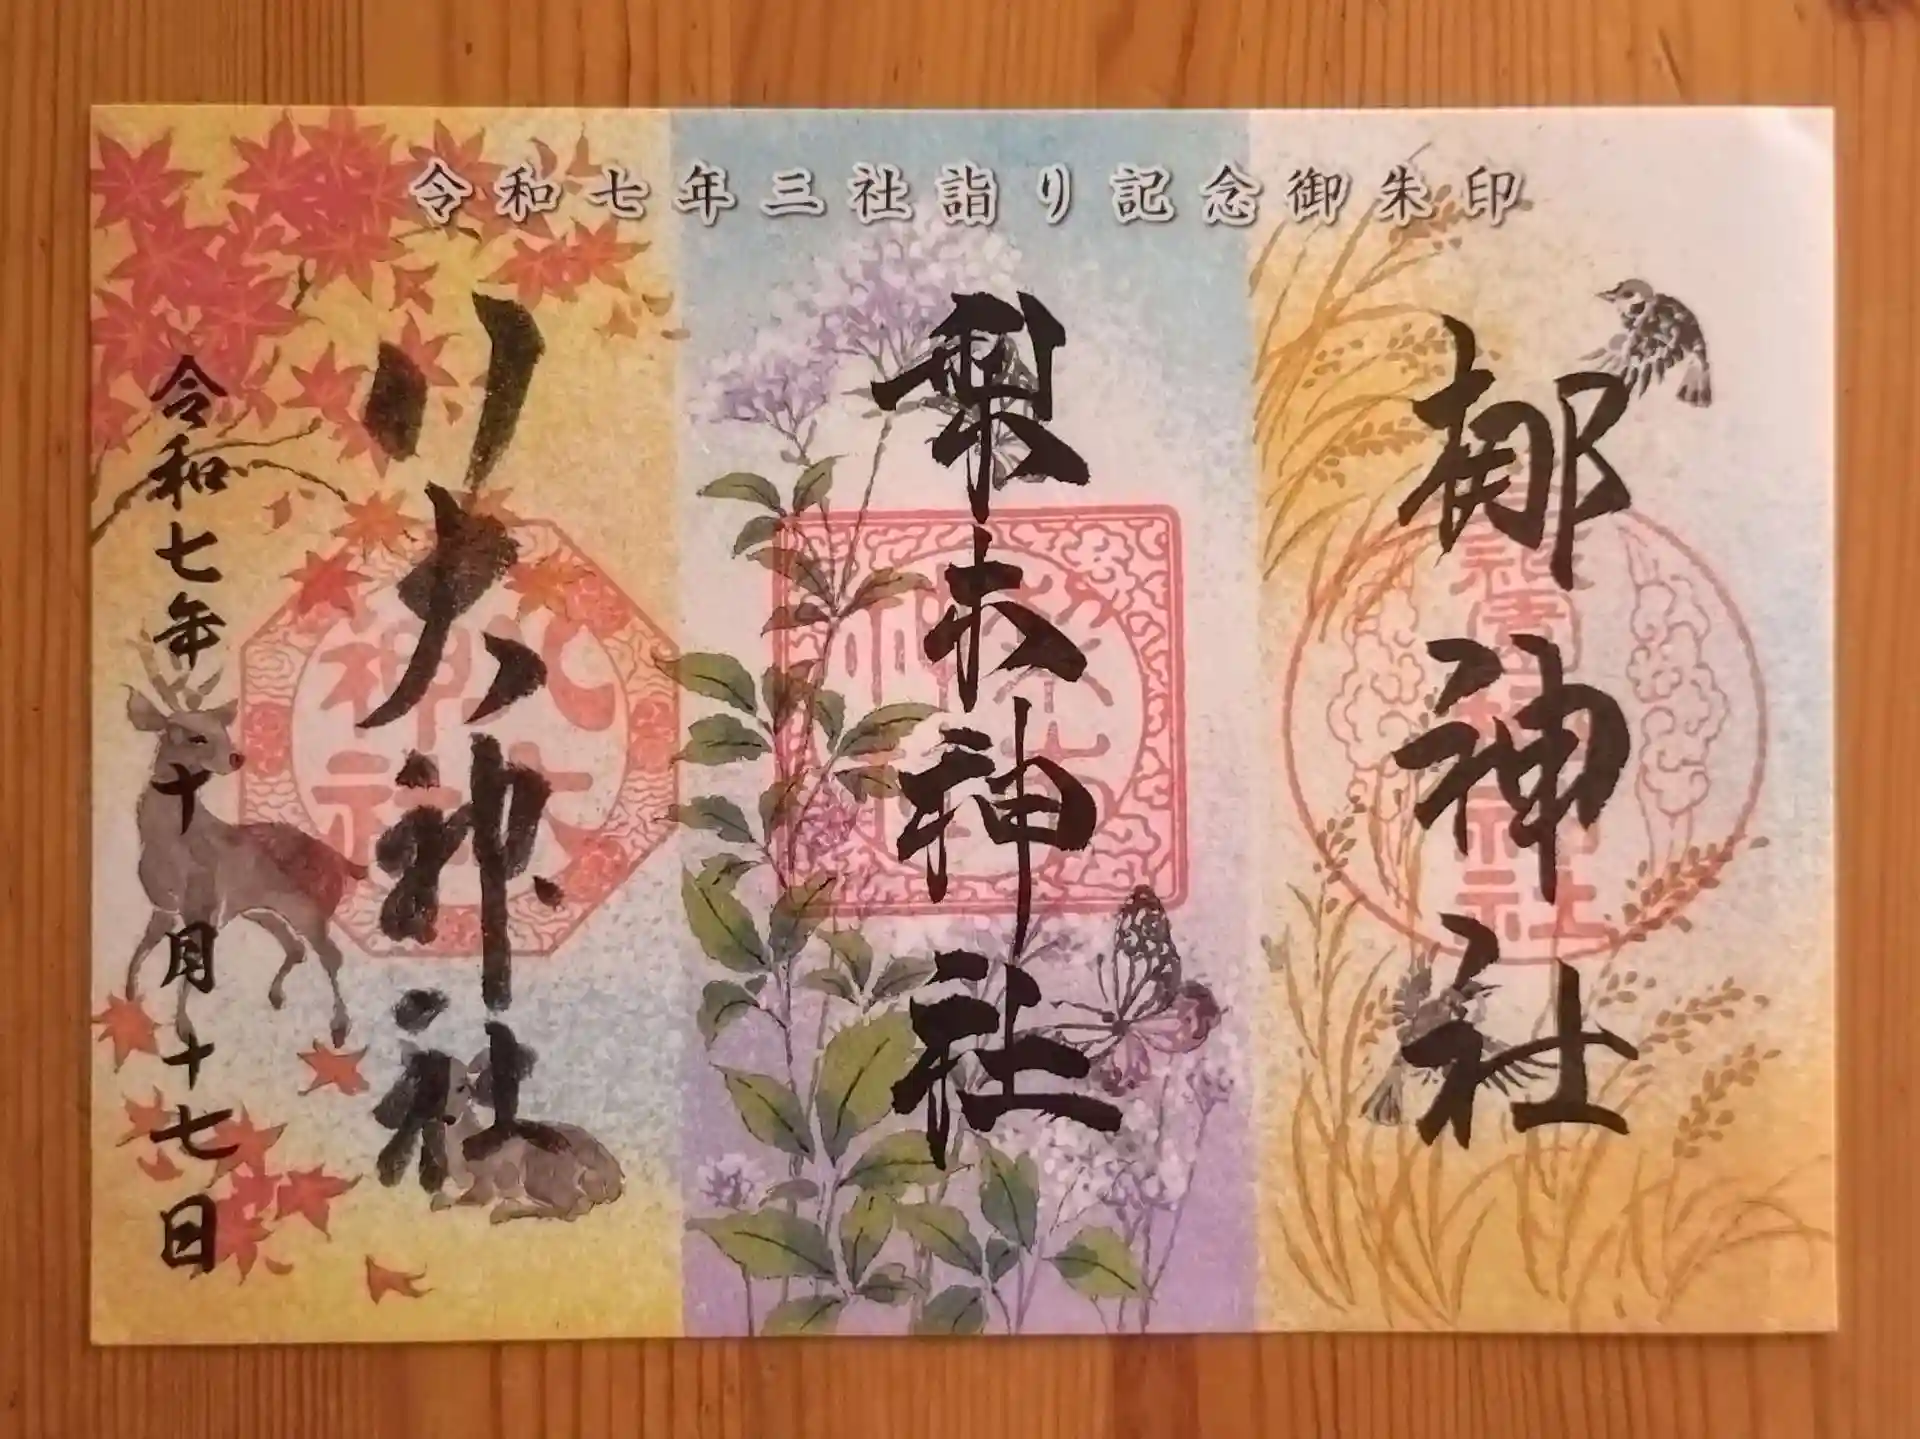 令和七年三社詣り記念御朱印
梛神社
梨木神社
八大神社
八大神社
令和七年十月十七日